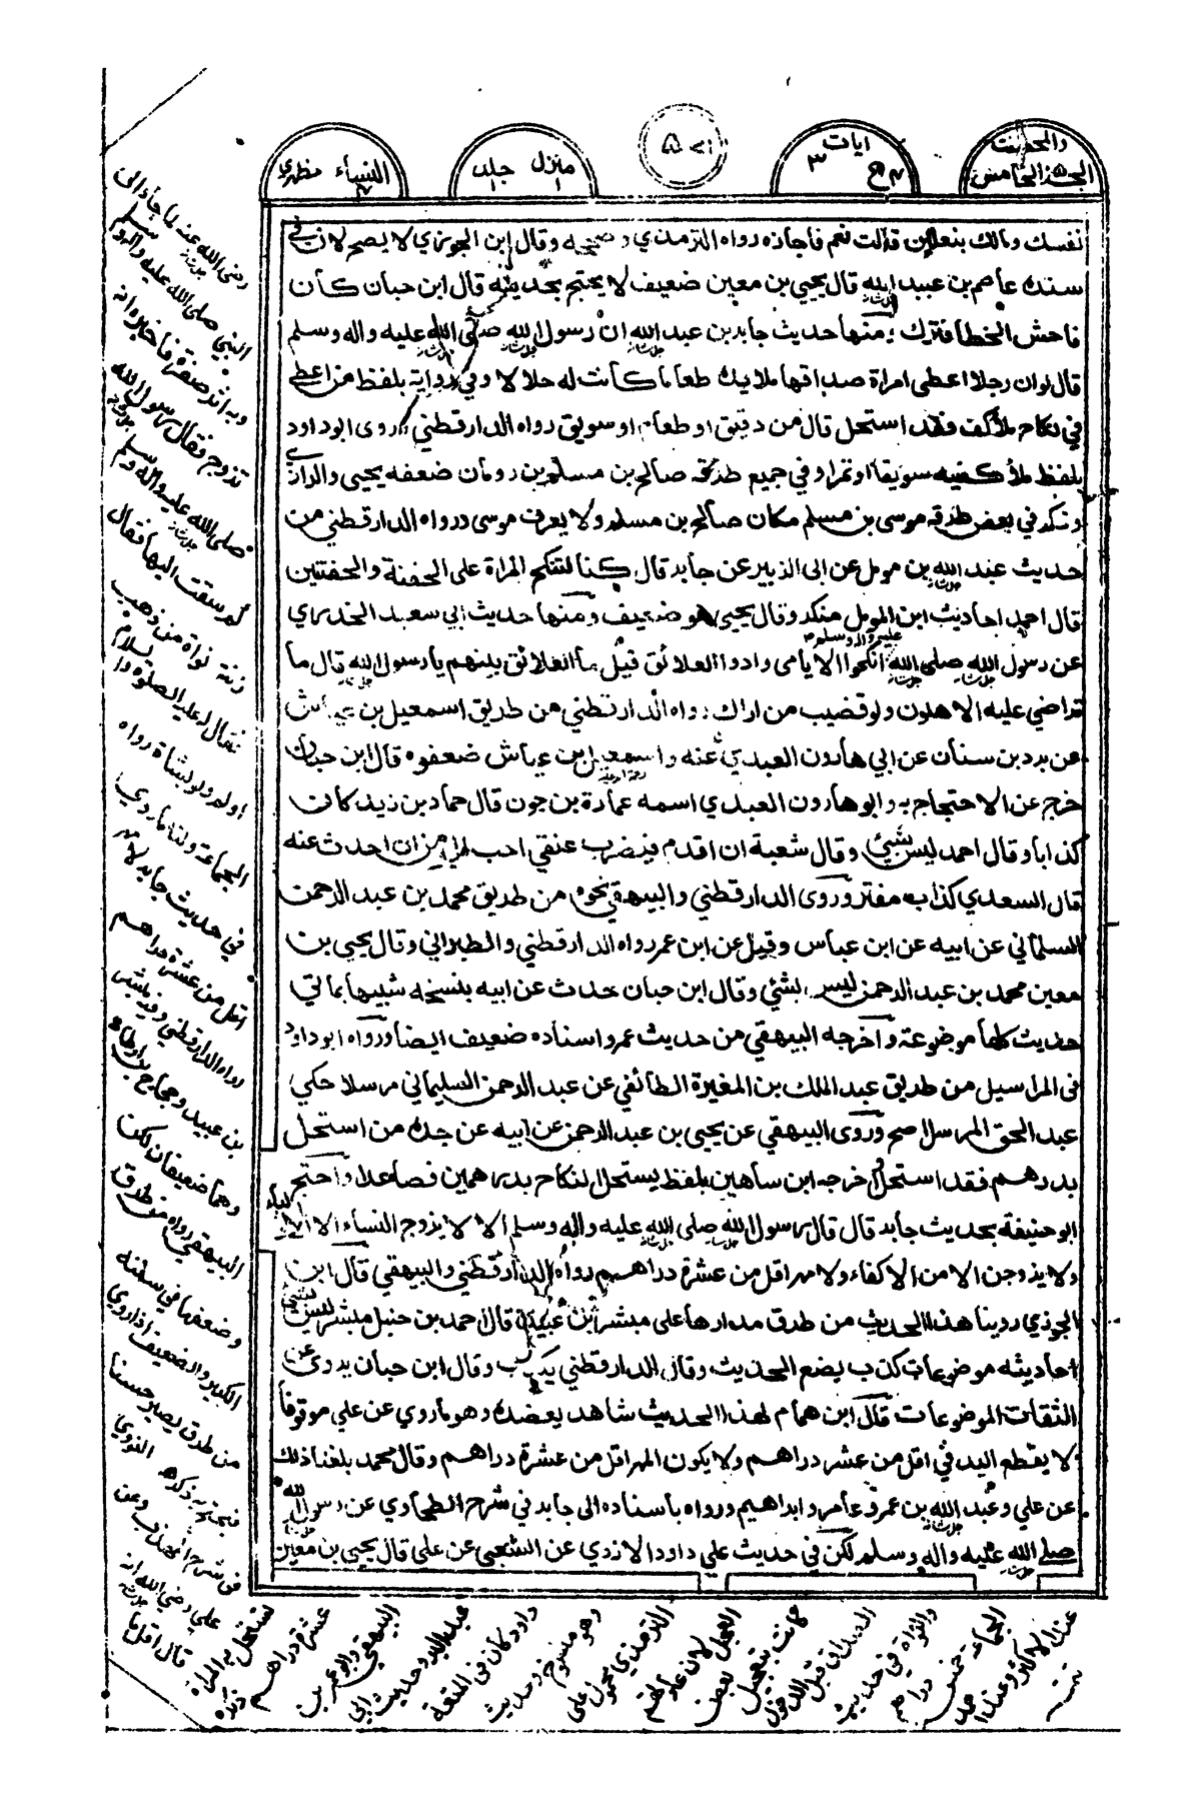 والمحصنت
الجزء الخامس
ايات ٣
منزل ١ جلد ١
النساء مظهري
نفسك ومالك بنعلين قالت نعم فاجازه رواه الترمذي وصححه وقال ابن الجوزي لا يصح لان في
سنده عاصم بن عبيد الله قال يحيى بن معين ضعيف لا يحتج بحديثه قال ابن حبان كان
فاحش الخطا فترك ومنها حديث جابر بن عبد الله ان رسول الله صلى الله عليه واله وسلم
قال لوان رجلا اعطى امراة صداقها ملا يديه طعاما كانت له حلالا وفي رواية بلفظ من اعطى
في نكاح ملأ كف فقد استحل قال من دقيق او طعام او سويق رواه الدارقطني وروى ابو داود
بلفظ ملأ كفيه سويقا او تمرا وفي جميع طرقه صالح بن مسلم بن رومان ضعفه يحيى والرازي
وذكر في بعض طرقه موسى بن مسلم مكان صالح بن مسلم ولا يعرف موسى ورواه الدارقطني من
حديث عبد الله بن مومل عن ابى الزبير عن جابر قال كنا لننكح المراة على الحفنة والحفنتين
قال احمد احاديث ابن المومل منكر وقال يحيى هو ضعيف ومنها حديث ابي سعيد الخدري
عن رسول الله صلى الله عليه واله وسلم انكحوا الايامى وادوا العلائق قيل ما العلائق بينهم يا رسول الله قال ما
تراضي عليه الاهلون ولو قضيب من اراك رواه الدارقطني من طريق اسمعيل بن عياش
عن برد بن سنان عن ابي هارون العبدي عنه واسمعيل ابن عياش ضعفوه قال ابن حبان
خرج عن الاحتجاج به وابو هارون العبدي اسمه عمارة بن جون قال حماد بن زيد كان
كذابا وقال احمد ليس بشيئ وقال شعبة ان اقدم فيضرب عنقي احب الي من ان احدث عنه
قال السعدي كذاب مفتر وروى الدارقطني والبيهقي نحوه من طريق محمد بن عبد الرحمن
السلماني عن ابيه عن ابن عباس وقيل عن ابن عمر رواه الدارقطني والطبراني وقال يحيى بن
معين محمد بن عبد الرحمن ليس بشئي وقال ابن حبان حدث عن ابيه بنسخه شبيها بماتي
حديث كلها موضوعة واخرجه البيهقي من حديث عمر واسناده ضعيف ايضا ورواه ابو داود
فى المراسيل من طريق عبد الملك بن المغيرة الطائفي عن عبد الرحمن السليماني مرسلا حكى
عبد الحق المرسل اصح وروى البيهقي عن يحيى بن عبد الرحمن عن ابيه عن جده من استحل
بدرهم فقد استحل اخرجه ابن ساهين بلفظ يستحل النكاح بدرهمين فصاعدا واحتج
ابو حنيفة بحديث جابر قال قال رسول الله صلى الله عليه واله وسلم الا لا يزوج النساء الا الاولياء
ولا يزوجن الا من الاكفاء ولا مهر اقل من عشرة دراهم رواه الدارقطني والبيهقي قال ابن
الجوزي روينا هذا الحديث من طرق مدارها على مبشر ابن عبيد قال احمد بن حنبل مبشر ليس بشئ
احاديثه موضوعات كذب يضع الحديث وقال الدارقطني يكذب وقال ابن حبان يروى عن
الثقات الموضوعات قال ابن همام لهذا الحديث شاهد يعضده وهو ما روي عن علي موقوفا
لا يقطع اليد في اقل من عشر دراهم ولا يكون المهر اقل من عشرة دراهم وقال محمد بلغنا ذلك
عن علي وعبد الله بن عمر وعامر وابراهيم ورواه باسناده الى جابر في شرح الطحاوي عن رسول الله
صلى الله عليه واله وسلم لكن في حديث علي داود الازدي عن الشعبي عن على قال يحيى بن معين
رضى الله عنه لما جاء الى
النبي صلى الله عليه واله وسلم
وبه اثر صفرة فاخبره انه
تزوج فقال رسول الله
صلى الله عليه واله وسلم
كم سقت اليها فقال
زنة نواة من ذهب
فقال له عليه الصلوة والسلام
اولم ولو بشاة رواه
الجماعة ولنا ما روي
في حديث جابر لا مهر
اقل من عشرة دراهم
رواه الدارقطني وفيه مبشر
بن عبيد وحجاج بن ارطاة
وهما ضعيفان لكن
البيهقي رواه من طرق
وضعفها في سننه
الكبير والضعيف اذا روي
من طرق يصير حسنا
فيحتج به ذكره النووي
في شرح المهذب وعن
علي رضي الله انه
قال اقل ما
تستحل به المراة
عشرة دراهم ذكره
البيهقي وابو عمر بن
عبد البر وحديث ابي
داود كان في المتعة
وهو منسوخ وحديث
الترمذي محمول على
المعجل لان عادتهم
كانت بتعجيل بعض
الصداق قبل الدخول
والنواة في حديث
الجماعة خمس دراهم
عند الاكثر وعند احمد